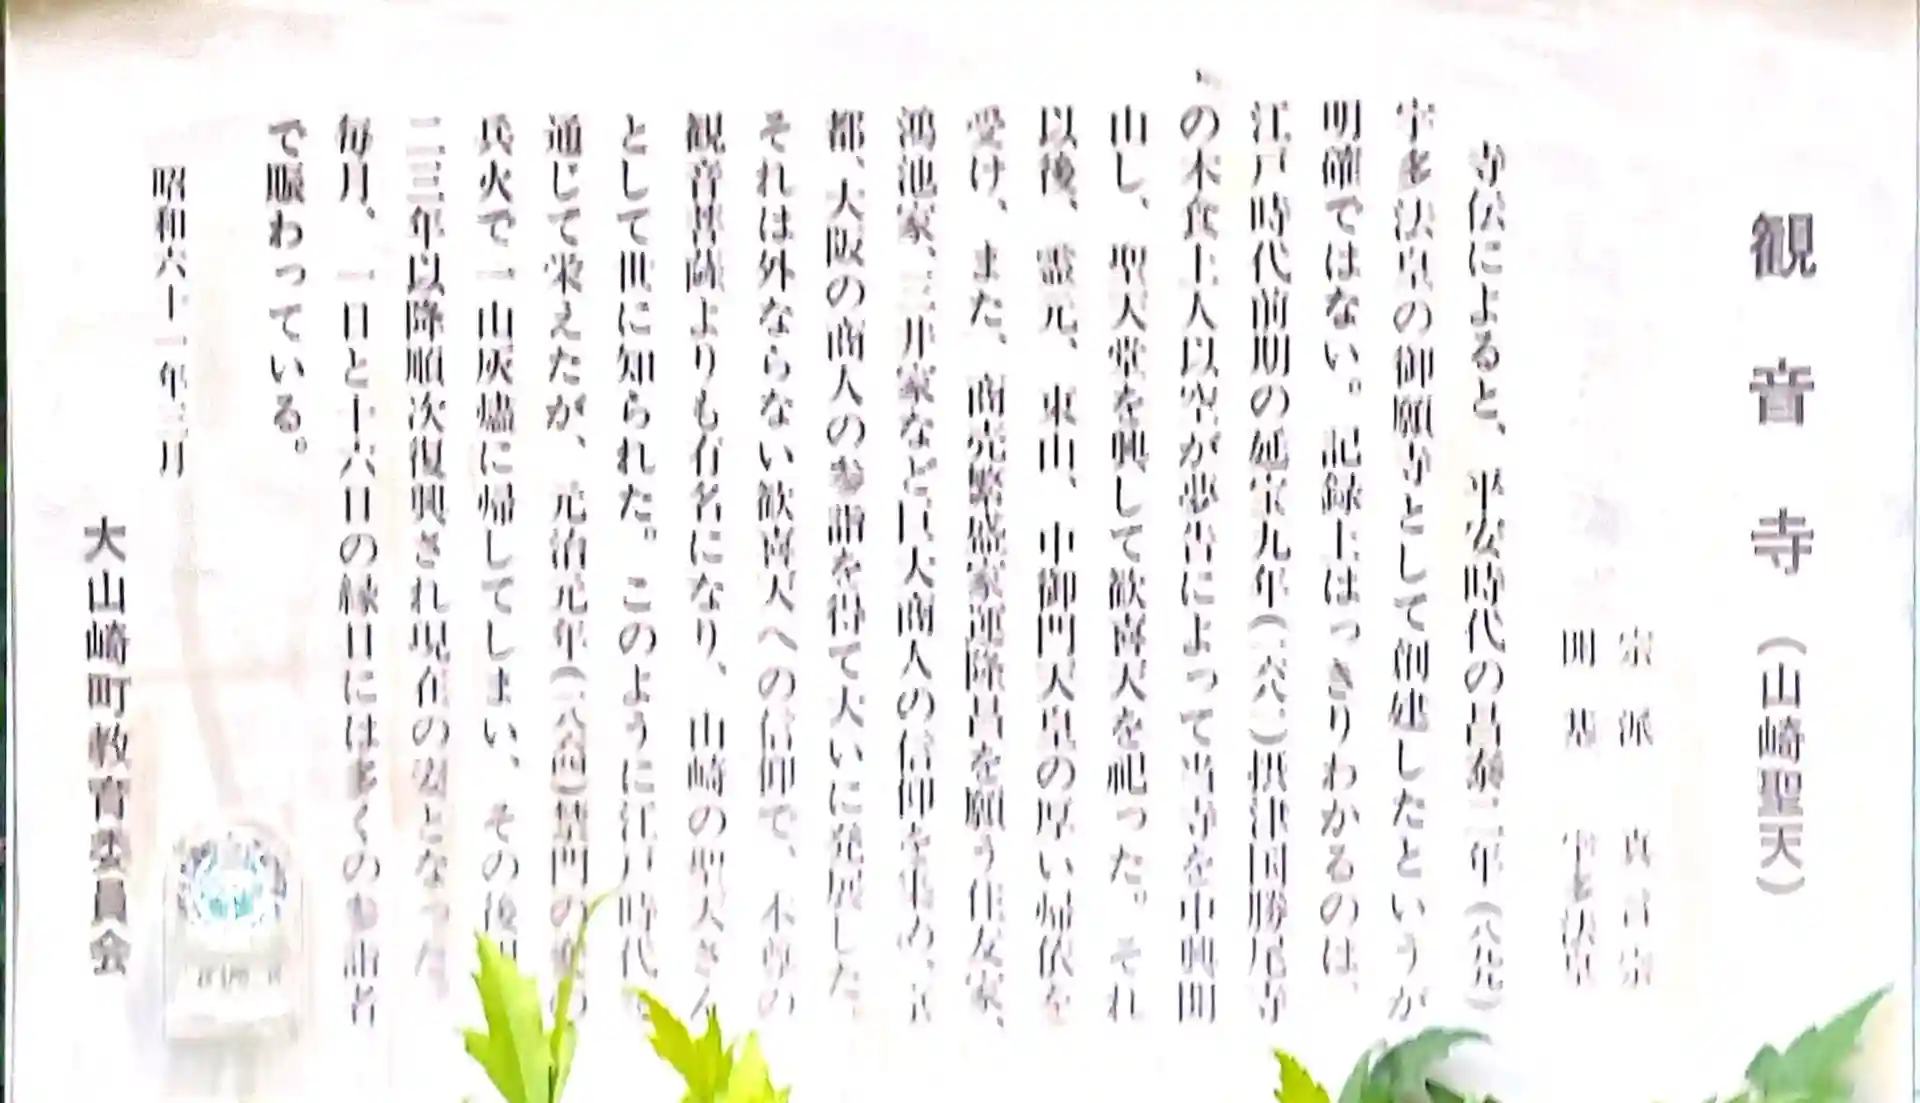 観音寺（山崎聖天）
宗派 真言宗
開基 宇多法皇
寺伝によると、平安時代の昌泰二年（八九九）
宇多法皇の御願寺として創建したというが
明確ではない。記録上はっきりわかるのは、
江戸時代前期の延宝九年（一六八一）摂津国勝尾寺
の木食上人以空が夢告によって当寺を中興開
山し、聖天堂を興して歓喜天を祀った。それ
以後、霊元、東山、中御門天皇の厚い帰依を
受け、また、商売繁盛家運隆昌を願う住友家、
鴻池家、三井家など巨大商人の信仰を集め、京
都、大阪の商人の参詣を得て大いに発展した。
それは外ならない歓喜天への信仰で、本尊の
観音菩薩よりも有名になり、山崎の聖天さん
として世に知られた。このように江戸時代
通じて栄えたが、元治元年（一八六四）禁門の変の
兵火で一山灰燼に帰してしまい、その後明
二三年以降順次復興され現在の姿となった。
毎月、一日と十六日の縁日には多くの参詣者
で賑わっている。
昭和六十一年三月
大山崎町教育委員会